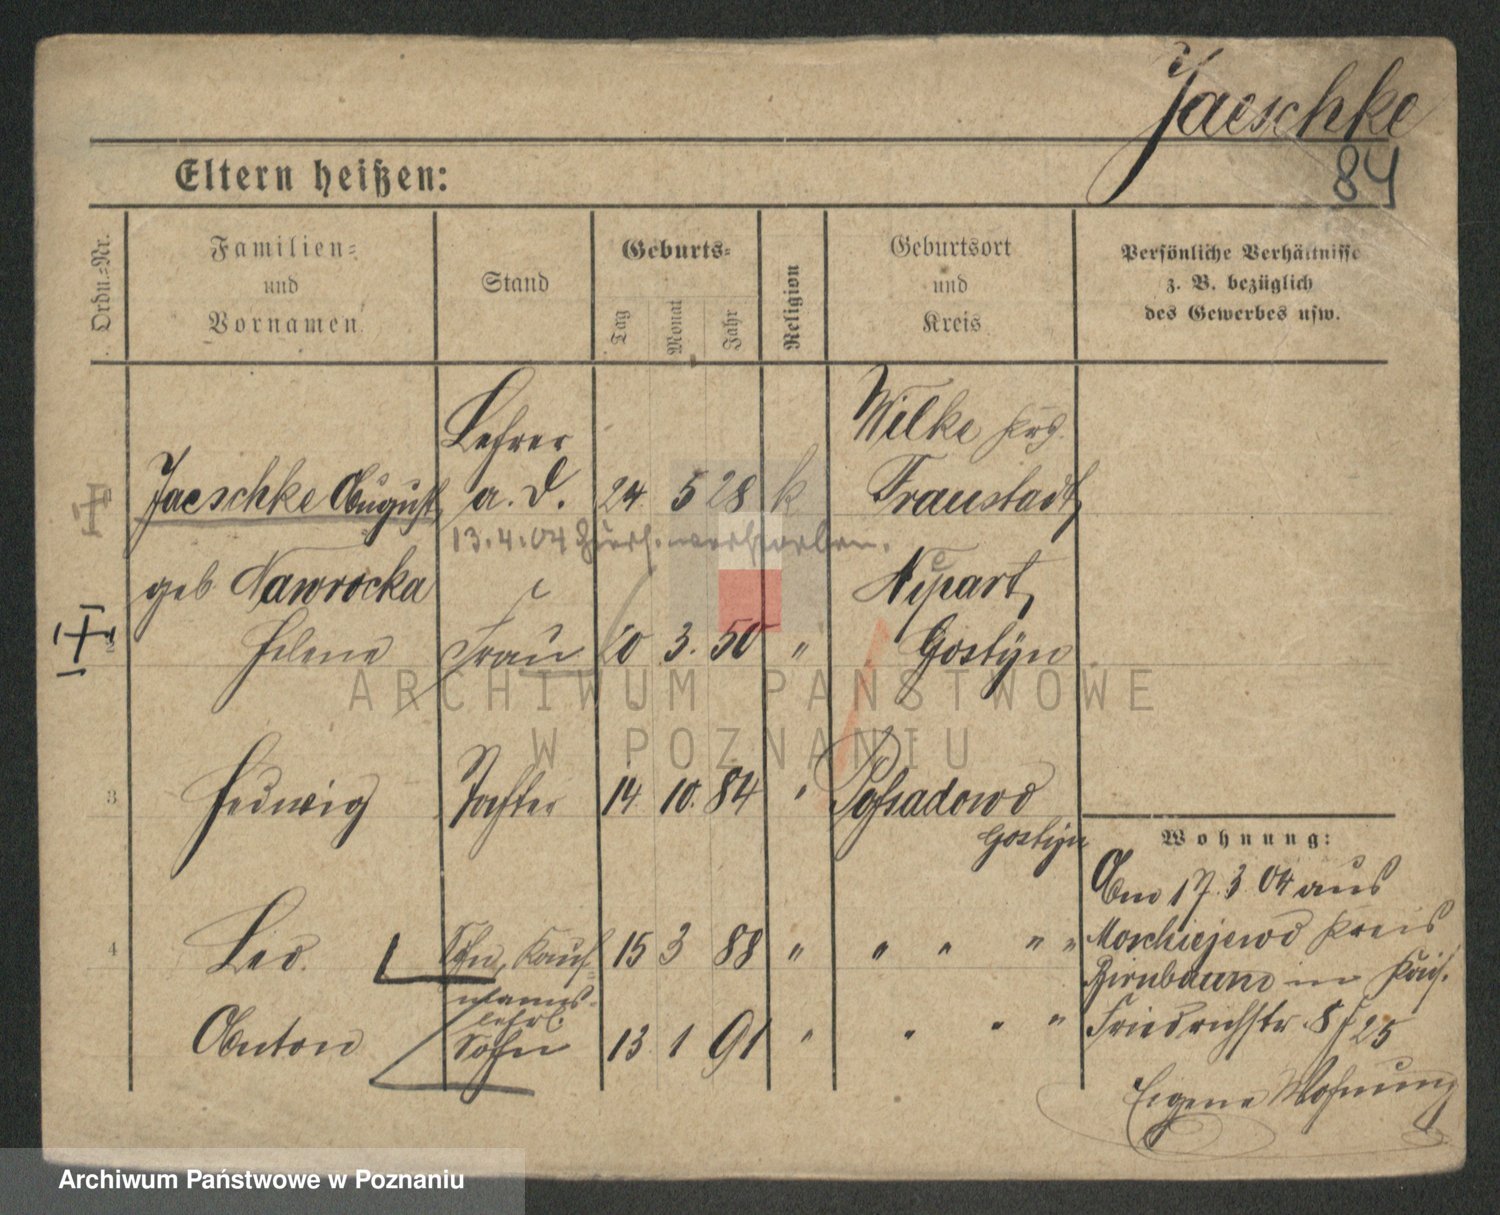 Jaeschke
84
Eltern heißen:
Ordn.-Nr.
Familien-
und
Vornamen
Stand
Geburts-
Tag
Monat
Jahr
Religion
Geburtsort
und
Kreis
Persönliche Verhältnisse
z. B. bezüglich
des Gewerbes usw.
Lehrer Wilke
Jaeschke August a. D. 24. 5 28 k Fraustadt
13.4.04 verstorben.
geb Nawrocka
Helene Frau 20 3. 50 " Gostyn
3 Hedwig Tochter 14. 10. 84 "
Gostyn
Wohnung:
Am 17. 3 04 aus
4 Leo. Sohn, Kauf- 15 3 88 " " " " " Kreis
manns- Birnbaum in
lehrl.
Anton Sohn 13 1 91 " " " " Friedrichstr. 25
Eigene Wohnung
ARCHIWUM PAŃSTWOWE
W POZNANIU
Archiwum Państwowe w Poznaniu